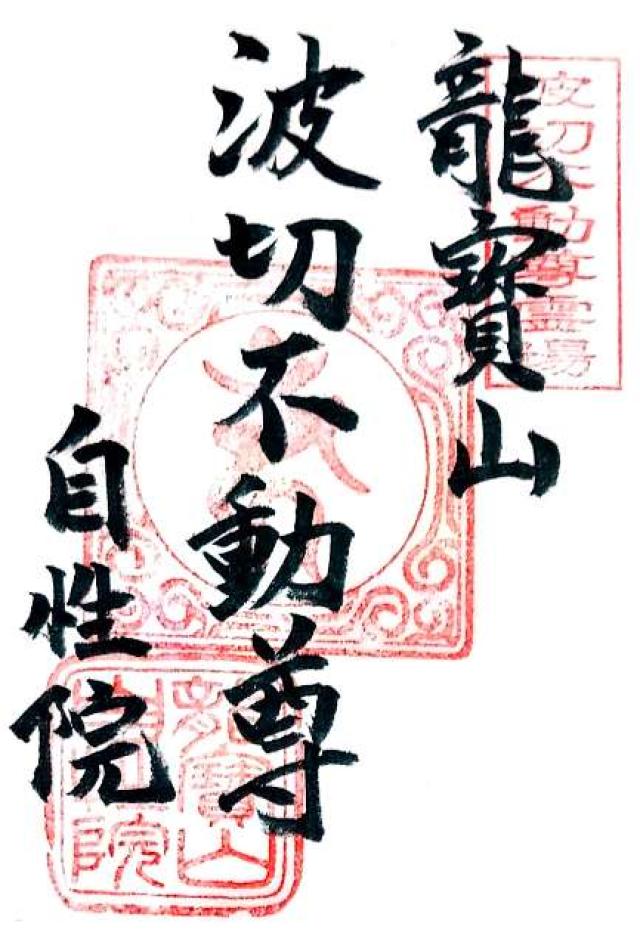 波切不動尊霊場
龍寳山
波切不動尊
自性院
龍寳山
自性院